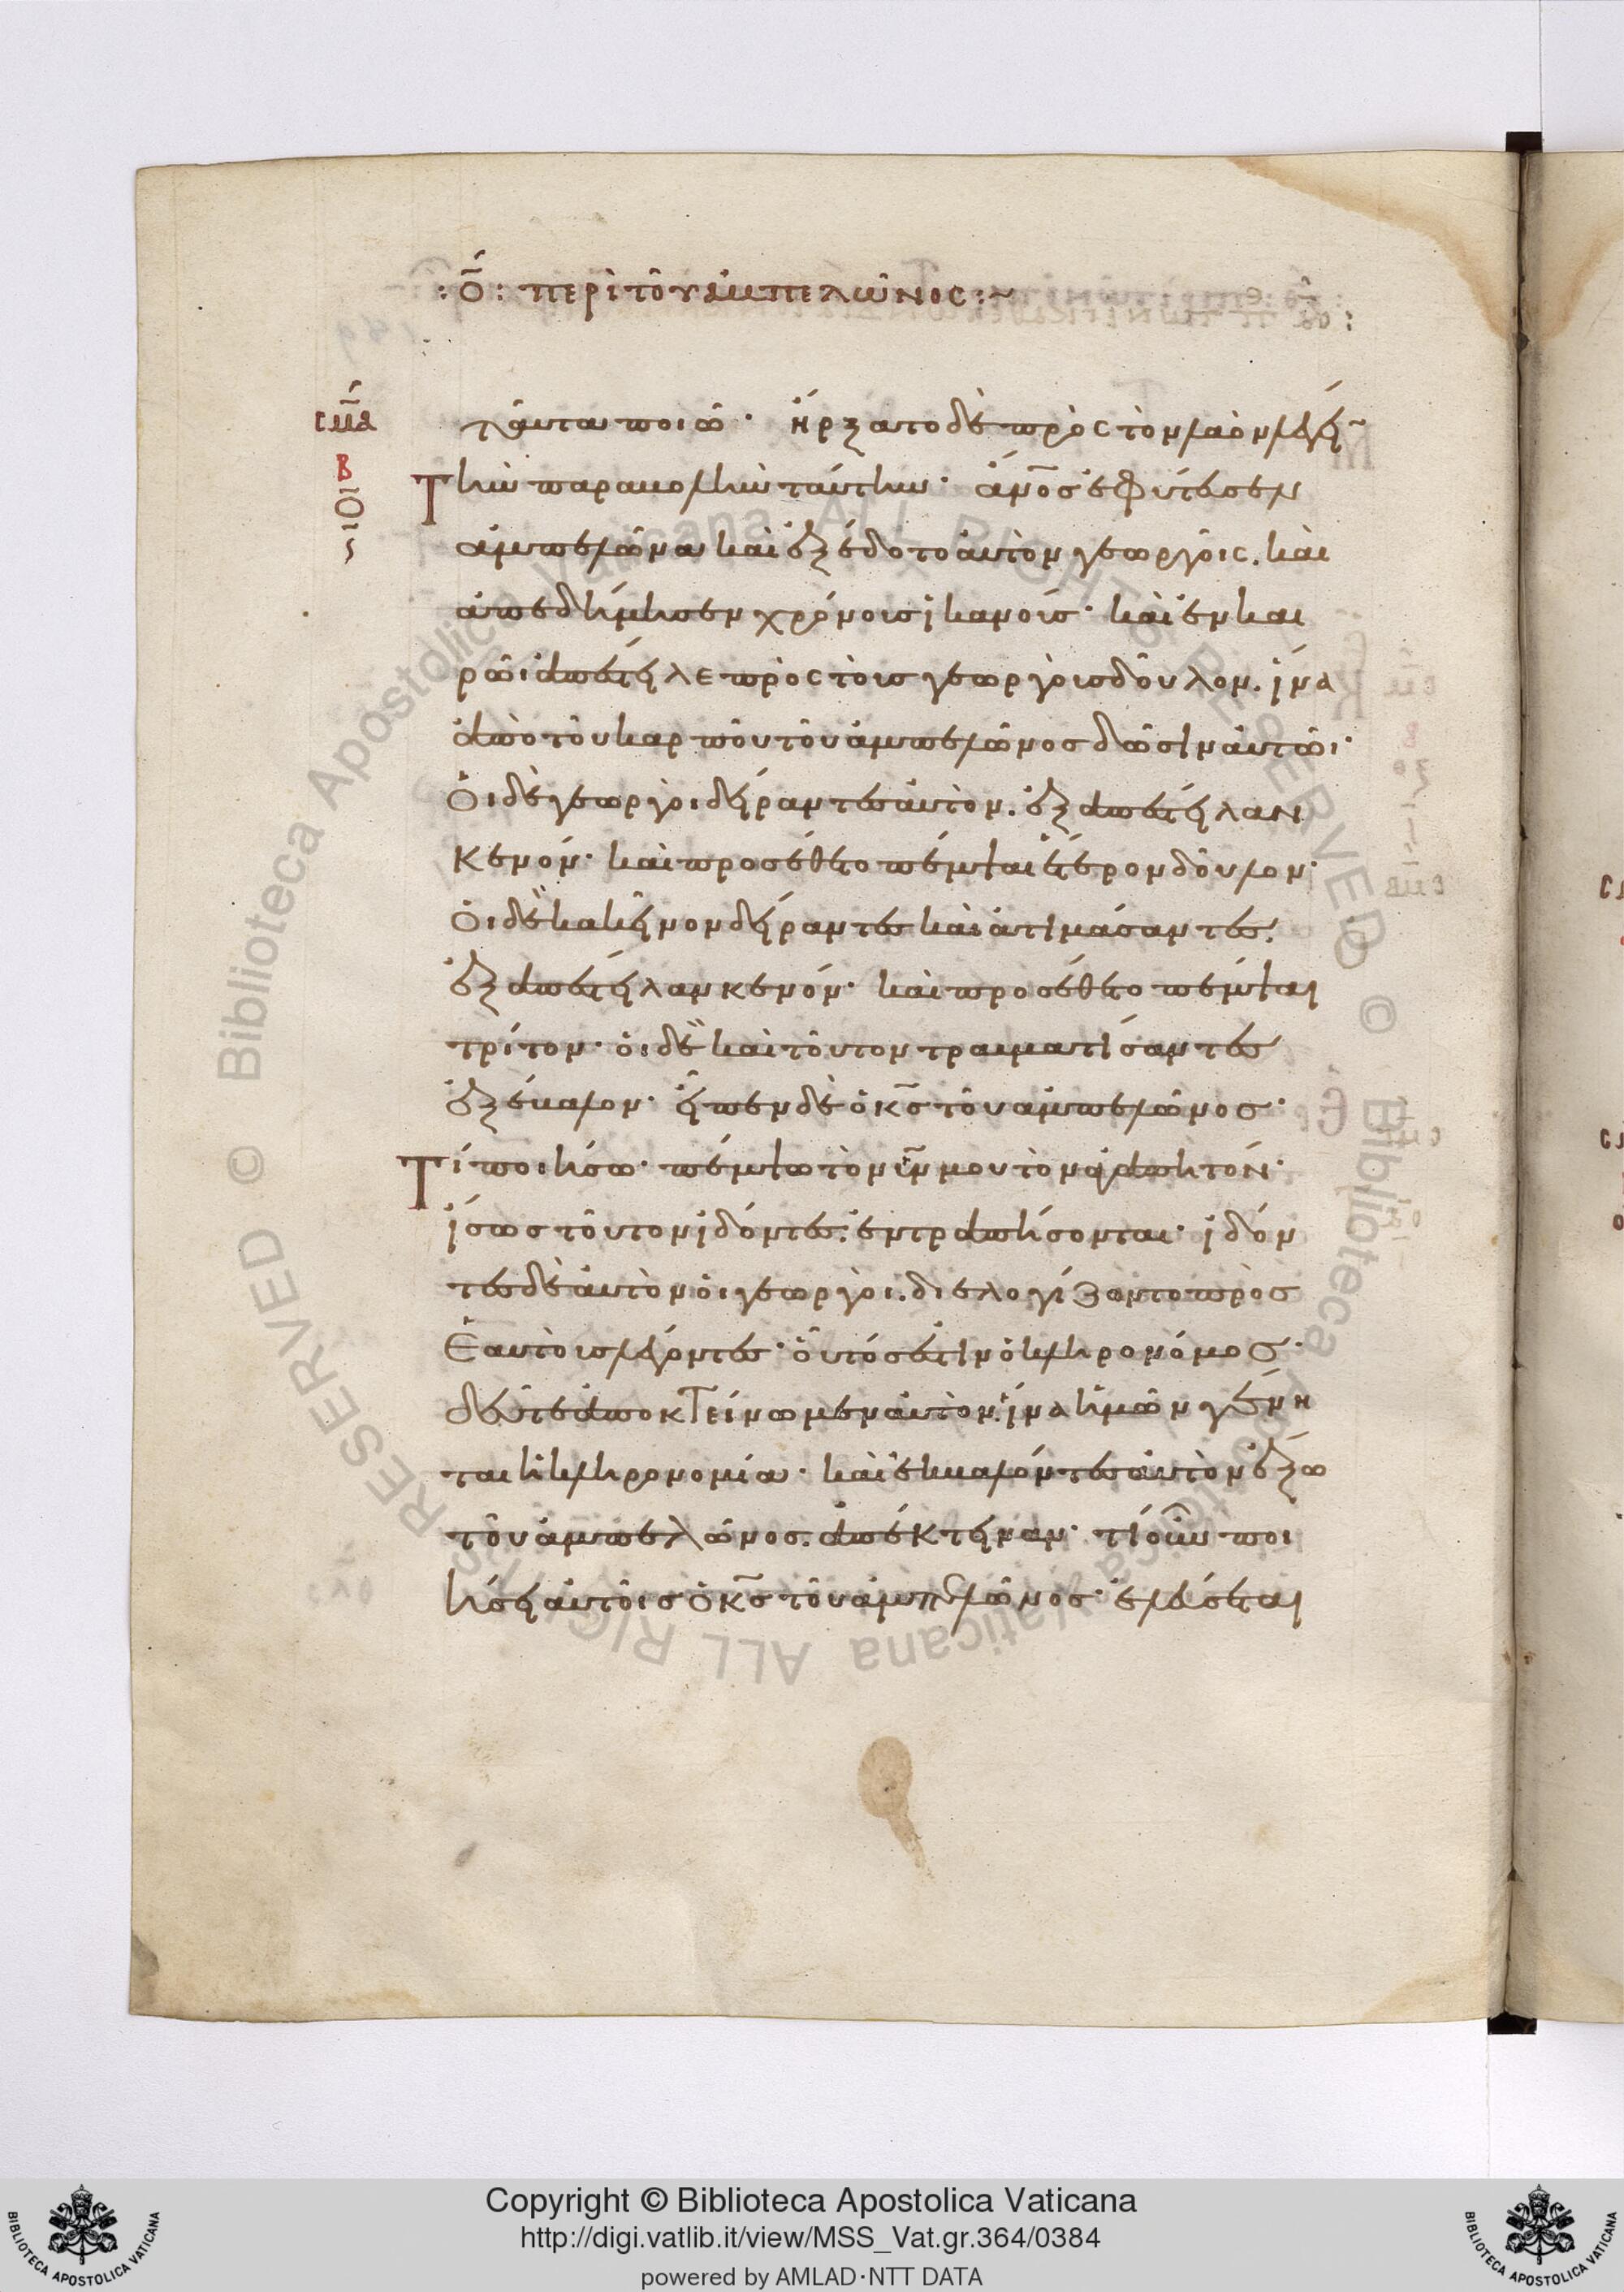 : ο̅ : περὶ τοῦ ἀμπελῶνος : ~
ταῦτα ποιῶ · ἤρξατο δὲ πρὸς τὸν λαὸν λέγειν
σμα
Τὴν παραβολὴν ταύτην · ἄν̅ο̅σ̅ ἐφύτευσεν
β
ο̅
ς
ἀμπελῶνα καὶ ἐξέδοτο αὐτὸν γεωργοῖς . καὶ
ἀπεδήμησεν χρόνους ἱκανούς · καὶ ἐν και
ρῶι ἀπέστειλε πρὸς τοὺς γεωργοὺς δοῦλον . ἵνα
ἀπὸ τοῦ καρποῦ τοῦ ἀμπελῶνος δῶσιν αὐτῶι ·
Οἱ δὲ γεωργοὶ δείραντες αὐτὸν . ἐξαπέστειλαν
κενόν · καὶ προσέθετο πέμψαι ἕτερον δοῦλον ·
Οἱ δὲ κακεῖνον δείραντες καὶ ἀτιμάσαντες .
ἐξαπέστειλαν κενόν · καὶ προσέθετο πέμψαι
τρίτον · οἱ δὲ καὶ τοῦτον τραυματίσαντες
ἐξέβαλον · εἶπεν δὲ ὁ κ̅σ̅ τοῦ ἀμπελῶνος ·
Τί ποιήσω · πέμψω τὸν υ̅ν̅ μου τὸν ἀγαπητόν ·
ἴσως τοῦτον ἰδόντες . ἐντραπήσονται · ἰδόν
τες δὲ αὐτὸν οἱ γεωργοὶ . διελογίζοντο πρὸς
Ἑαυτοὺς λέγοντες · οὗτός ἐστιν ὁ κληρονόμος ·
δεῦτε ἀποκτείνωμεν αὐτὸν . ἵνα ἡμῶν γένη
ται ἡ κληρονομία · καὶ ἐκβαλόντες αὐτὸν ἔξω
τοῦ ἀμπελῶνος . ἀπέκτειναν · τί οὖν ποι
ήσει αὐτοῖς ὁ κ̅σ̅ τοῦ ἀμπελῶνος · ἐλεύσεται
Copyright © Biblioteca Apostolica Vaticana
http://digi.vatlib.it/view/MSS_Vat.gr.364/0384
powered by AMLAD·NTT DATA
BIBLIOTECA APOSTOLICA VATICANA
BIBLIOTECA APOSTOLICA VATICANA
© Biblioteca Apostolica Vaticana ALL RIGHTS RESERVED © Biblioteca Apostolica Vaticana ALL RIGHTS RESERVED